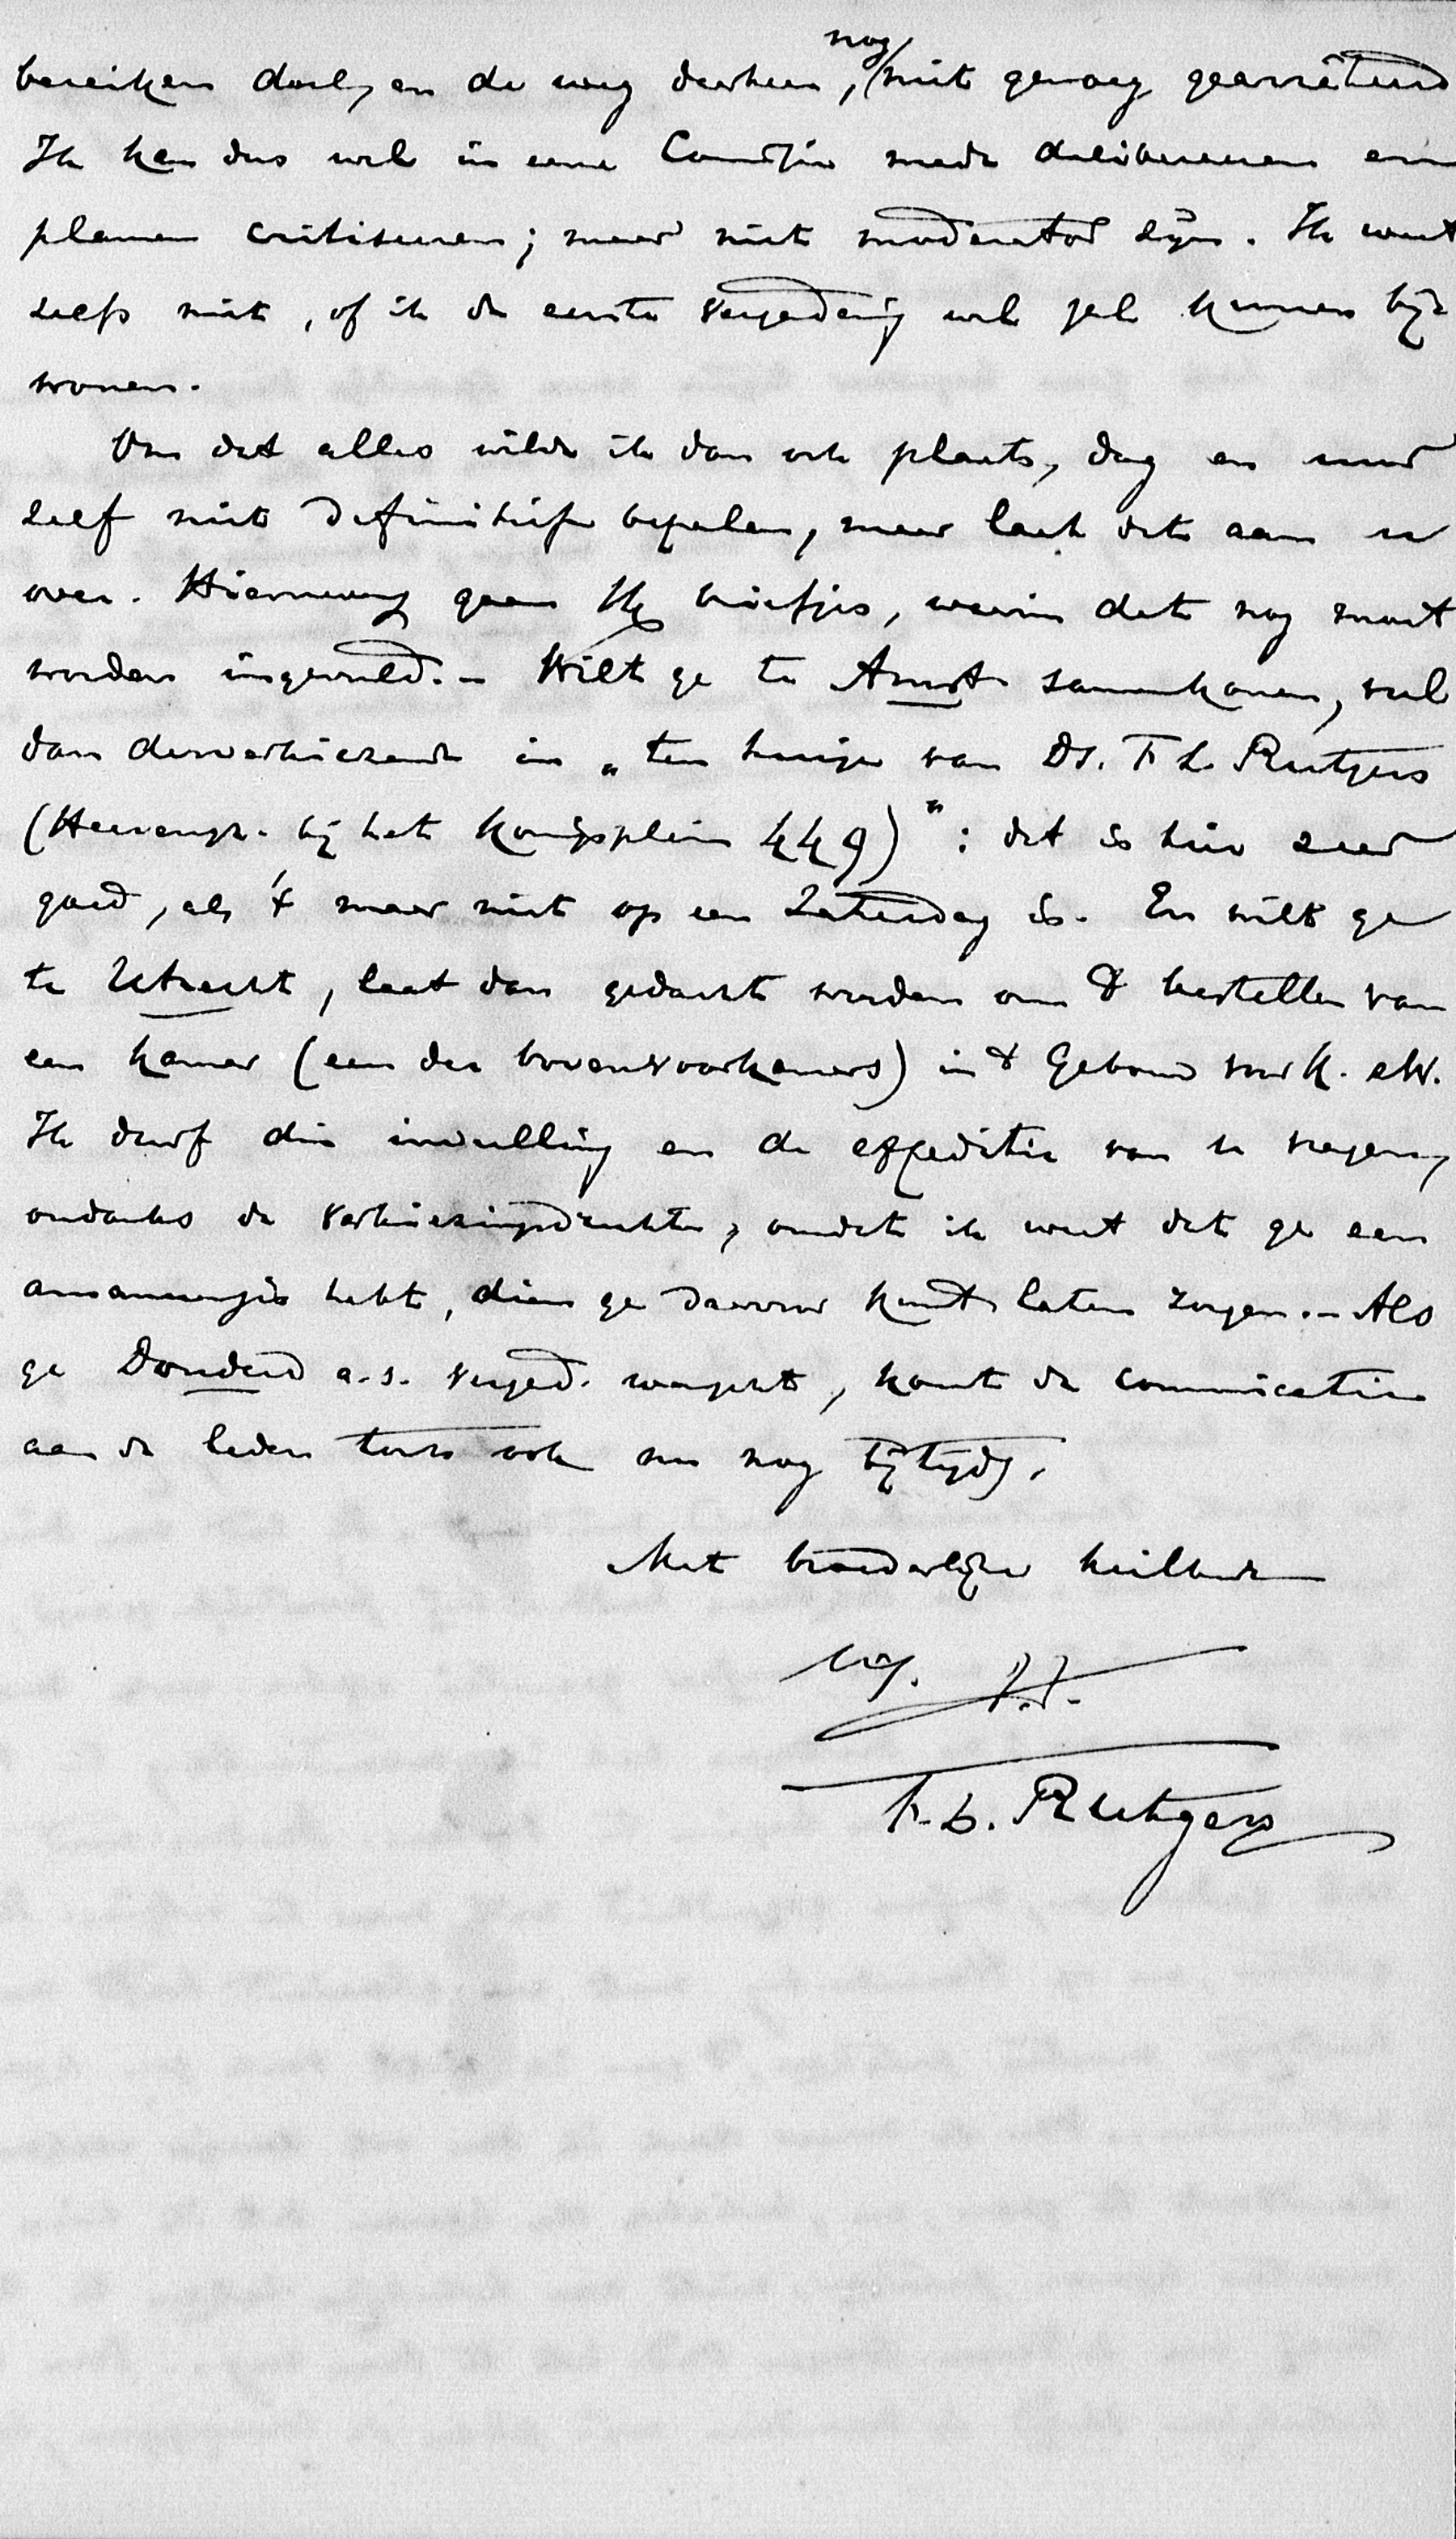 bereiken doel, en de weg daarheen, nog niet genoeg gearrêteerd
Ik kan dus wel in eene Comissie mede delibereeren en
plannen critiseeren; maar niet moderator zijn. Ik weet
zelfs niet, of ik de eerste vergadering wel zal kunnen bij-
wonen.
Om dat alles wilde ik dan ook plaats, dag en uur
zelf niet definitief bepalen, maar laat dit aan u
over. Hiernevens gaan de briefjes, waarin dat nog moet
worden ingevuld. – Wilt ge te Amst. samenkomen, vul
dan desverkiezende in „ten huize van Ds. F L Rutgers
(Heerengr. bij het Koningsplein 449)": dat is hier zeer
goed, als 't maar niet op een Zaterdag is. En wilt ge
te Utrecht, laat dan gedacht worden om 't bestellen van
een kamer (een der bovenvoorkamers) in 't Gebouw voor K. & W.
Ik durf die invulling en de expeditie van u vragen,
ondanks de verkiezingsdrukte, omdat ik weet dat ge een
amanuensis hebt, dien ge daarvoor kunt laten zorgen. – Als
ge Donderd a.s. vergad. wenscht, komt de communicatie
aan de leden toch ook nu nog bijtijds.
Met broederlijke heilbede
F. L. Rutgers